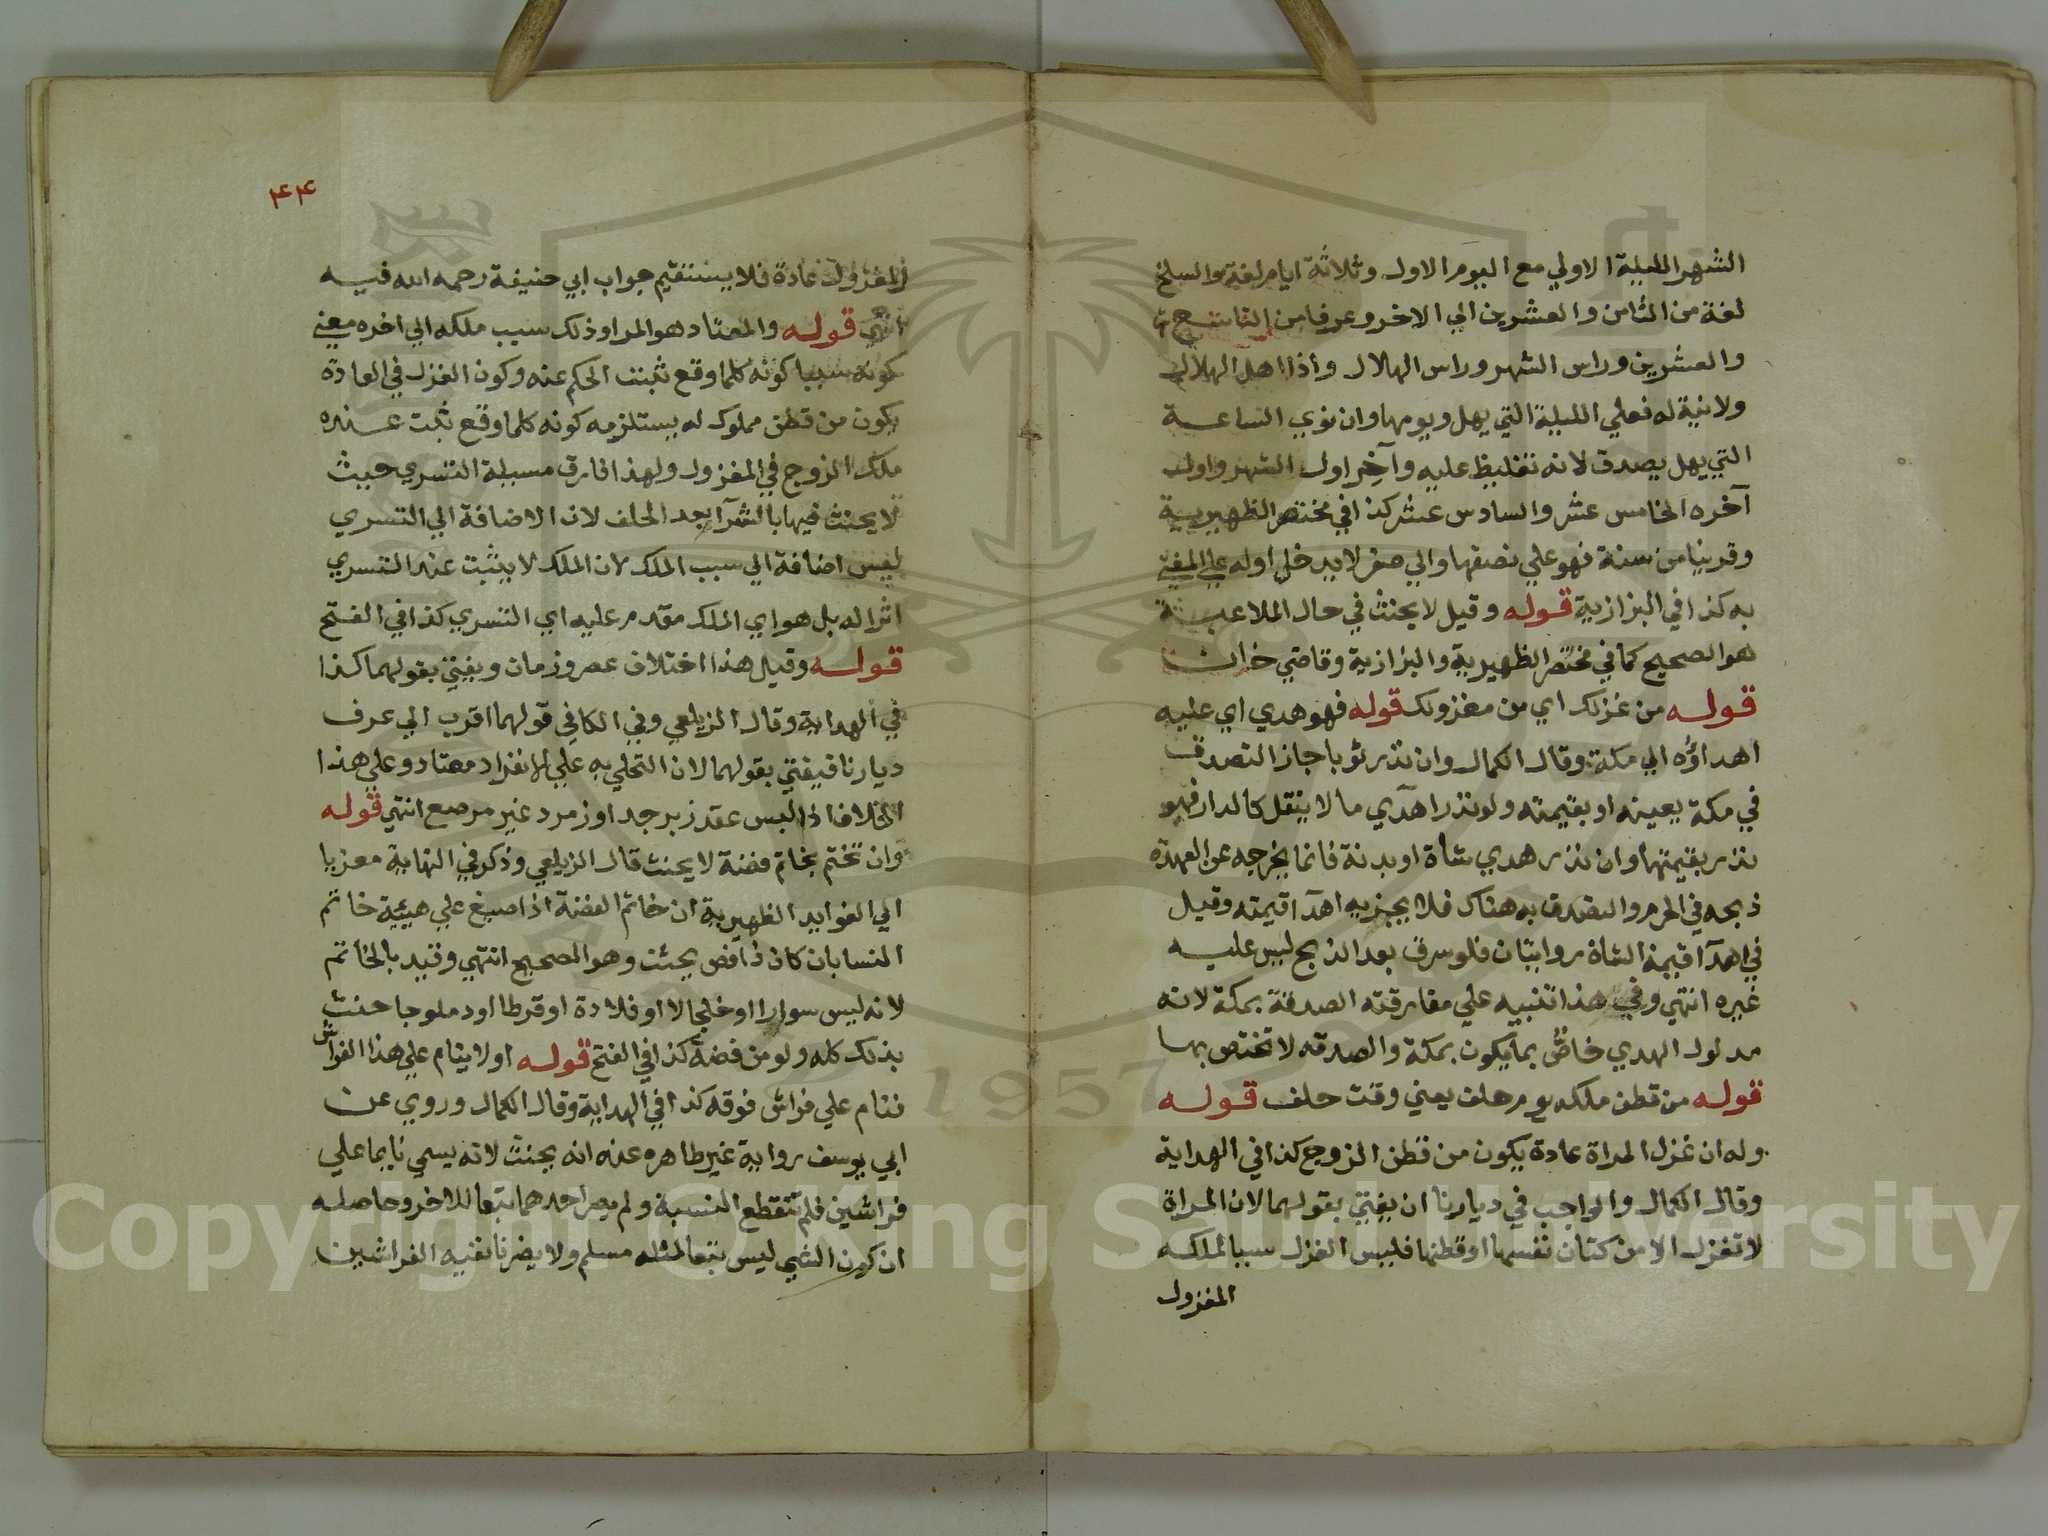 الشهر الليلة الاولي مع اليوم الاول وثلاثة ايام لغة والسلخ
لغة من الثامن والعشرين الي الاخر وعرفا من التاسع
والعشرين وراس الشهر وراس الهلال واذا اهل الهلال
ولا نية له فعلي الليلة التي يهل ويومها وان نوي الساعة
التي يهل يصدق لانه تغليظ عليه وآخر اول الشهر واول
آخره الخامس عشر والسادس عشر كذا في مختصر الظهيرية
وقريبا من سنة فهو علي نصفها والي صفر لا يدخل اوله علي المفتي
به كذا في البزازية قوله وقيل لا يحنث في حال الملاعبة
هو الصحيح كما في مختصر الظهيرية والبزازية وقاضي خان
قوله من غزلك اي من مغزولك قوله فهو هدي اي عليه
اهداؤه الي مكة وقال الكمال وان نذر ثوبا جاز التصدق
في مكة بعينه او بقيمته ولو نذر اهدآي ما لا ينقل كالدار فهو
نذر بقيمتها وان نذر هدي شاة او بدنة فانما يخرجه عن العهدة
ذبحه في الحرم والتصدق به هناك فلا يجزيه اهدآ قيمته وقيل
في اهدآ قيمة الشاة روايتان فلو سرق بعد الذبح ليس عليه
غيره انتهي وفي هذا تنبيه علي مفارقته الصدقة بمكة لانه
مدلول الهدي خاصٌّ بما يكون بمكة والصدقه لا تختص بها
قوله من قطن ملكه يوم حلف يعني وقت حلف قوله
وله ان غزل المراة عادة يكون من قطن الزوج كذا في الهداية
وقال الكمال والواجب في ديارنا ان يفتي بقولهما لان المراة
لا تغزل الا من كتان نفسها او قطنها فليس الغزل سببا لملكه
المغزول
٤٤
المغزول عادة فلا يستقيم جواب ابي حنيفة رحمه الله فيه
انتهي قوله والمعتاد هو المراد وذلك سبب ملكه الي اخره معني
كونه سببا كونه كلما وقع ثبت الحكم عنه وكون الغزل في العادة
يكون من قطن مملوك له يستلزمه كونه كلما وقع ثبت عنده
ملك الزوج في المغزول ولهذا فارق مسيلة التسري حيث
لا يحنث فيها بالشرآ بعد الحلف لان الاضافة الي التسري
ليس اضافة الي سبب الملك لان الملك لا يثبت عند التسري
اثرا له بل هو اي الملك مقدم عليه اي التسري كذا في الفتح
قوله وقيل هذا اختلاف عصر وزمان ويفتي بقولهما كذا
في الهداية وقال الزيلعي وفي الكافي قولهما اقرب الي عرف
ديارنا فيفتي بقولهما لان التحلي به علي الانفراد معتاد وعلي هذا
الخلاف اذا لبس عقد زبرجد او زمرد غير مرصع انتهي قوله
وان تختم بخاتم فضة لا يحنث قال الزيلعي وذكر في النهاية معزيا
الي الفوايد الظهيرية ان خاتم الفضة اذا صيغ علي هيئة خاتم
النسا بان كان ذا فص يحنث وهو الصحيح انتهي وقيد بالخاتم
لانه لبس سوارا او خلخالا او قلادة او قرطا او دملوجا حنث
بذلك كله ولو من فضة كذا في الفتح قوله اولا ينام علي هذا الفراش
فنام علي فراش فوقه كذا في الهداية وقال الكمال وروي عن
ابي يوسف رواية غير ظاهره عنه انه يحنث لانه يسمي نايما علي
فراشين فلم تنقطع النسبة ولم يصر احدهما تبعا للاخر وحاصله
ان كون الشي ليس تبعا لمثله مسلم ولا يضرنا نفيه الفراشين
Copyright © King Saud University
1957